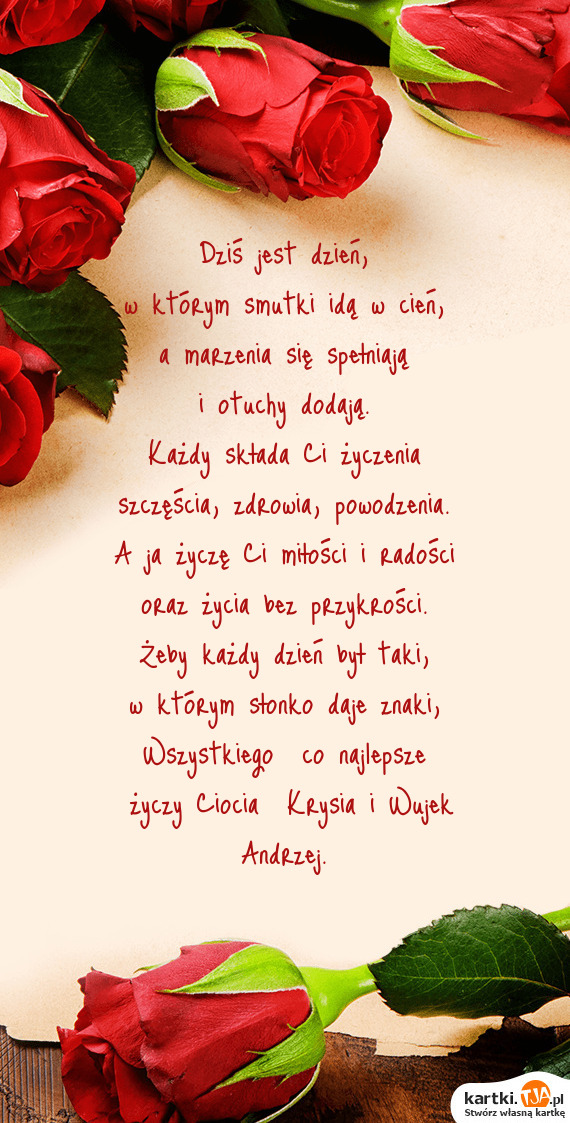 Dziś jest dzień,
w którym smutki idą w cień,
a marzenia się spełniają
i otuchy dodają.
Każdy składa Ci życzenia
szczęścia, zdrowia, powodzenia.
A ja życzę Ci miłości i radości
oraz życia bez przykrości.
Żeby każdy dzień był taki,
w którym słonko daje znaki,
Wszystkiego co najlepsze
życzy Ciocia Krysia i Wujek
Andrzej.
kartki.TJA.pl
Stwórz własną kartkę